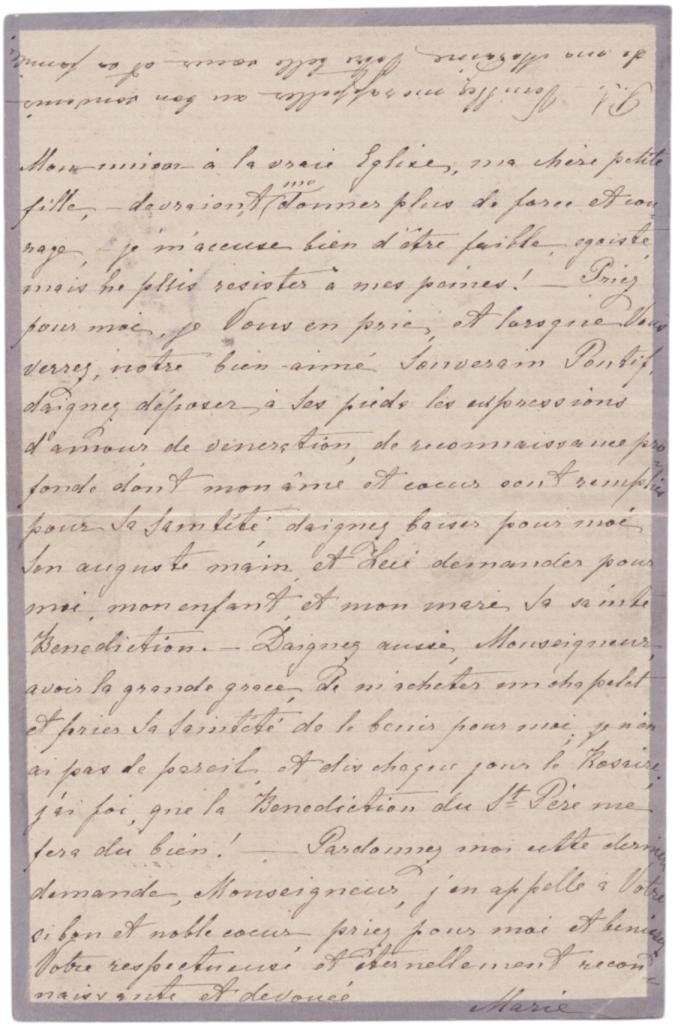 P.S. Veuillez me rappeller au bon souvenir
de ma Marraine, Votre belle soeur et sa famille
Mon union à la vraie Eglise, ma chère petite
fille, – devraient me donner plus de force et cou-
rage, – je m'accuse bien d'être faible, egoiste,
mais ne puis resister à mes peines! – Priez
pour moi, je Vous en prie, et lorsque Vous
verrez, notre bien-aimé Souverain Pontif,
daignez déposer à Ses pieds les expressions
d'amour de veneration, de reconnaissance pro-
fonde dont mon âme et coeur sont remplis
pour Sa Saintété daignez baiser pour moi
Son auguste main, et Lui demander pour
moi, mon enfant, et mon mari Sa sainte
Benediction. – Daignez aussi, Monseigneur,
avoir la grande grace, de m'acheter un chapelet
et prier Sa Saintété de le benir pour moi, je n'en
ai pas de pareil, et dis chaque jour le Rosaire,
j'ai foi, que la Benediction du St. Père me
fera du bien! – Pardonnez moi cette dernière
demande, Monseigneur, j'en appelle à Votre
si bon et noble coeur priez pour moi et bénissez
Votre respectueuse et éternellement recon-
naissante et devouée
Marie